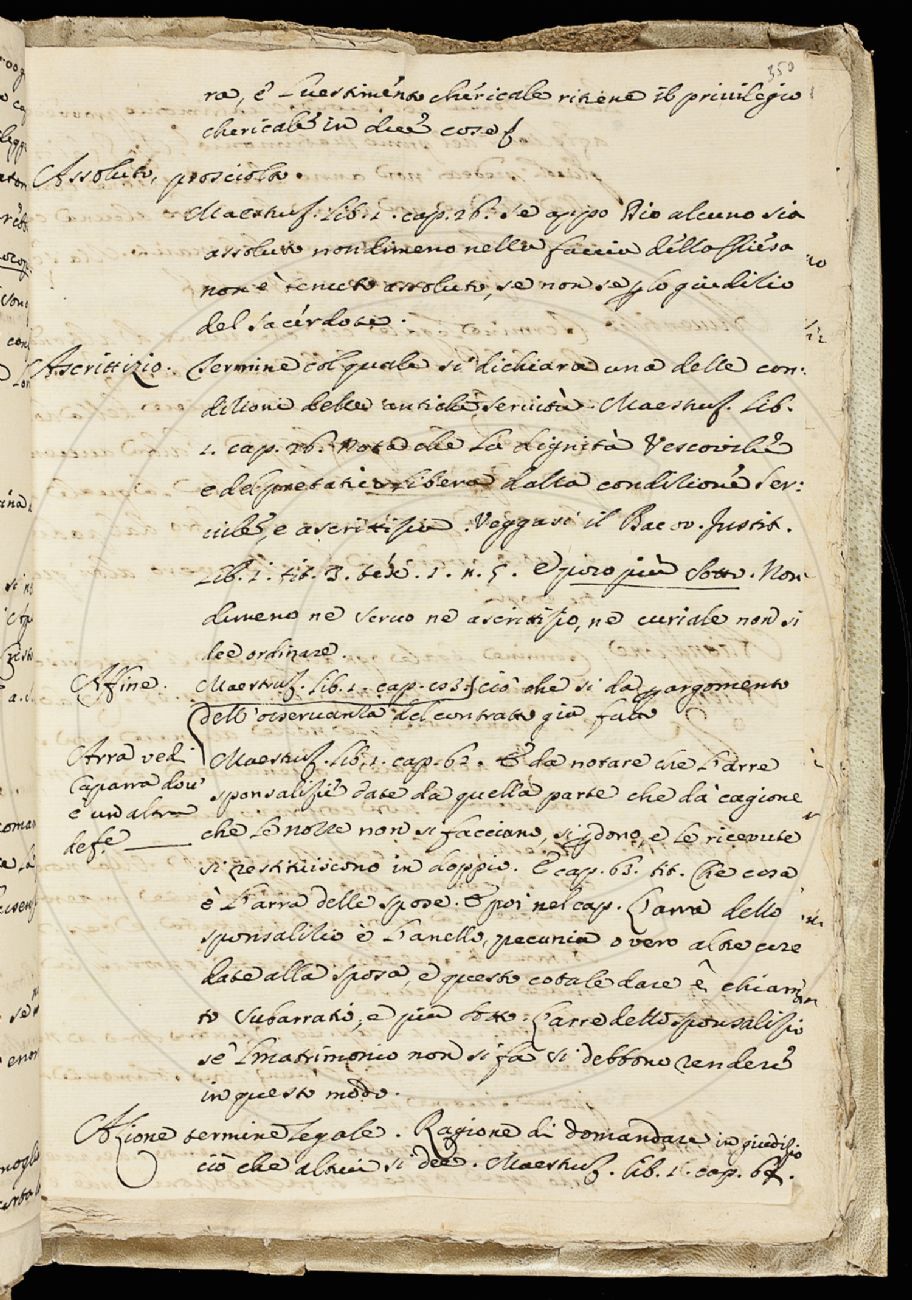 350
ra, e 'l vestimento chericale ritiene il privilegio
chericale in due cose
Assoluto, prosciolto
Maestruz. Lib. 1. cap. 26. Se appo Dio alcuno sia
assoluto nondimeno nella faccia della Chiesa
non è tenuto assoluto, se non se p lo giudizio
del Sacerdote.
Ascrittizio. Termine col quale si dichiara una delle con:
dizione delle antiche servitù. Maestruz. Lib.
1. cap. 26. Nota che la dignità Vescovile
e del libera dalla condizione ser:
vile, e ascrittizia. Veggasi il Bacov. Justit.
Lib. 1. tit. 3. 1. n. 5. E poco più sotto. Non:
dimeno ne servo ne ascrittizio, ne curiale non si
dee ordinare.
Affine. Maestruz. Lib. 1. cap. ciò che si da p argomento
dell'osservanza del contratto gia fatto
Arra vedi
Caparra dov'
è un'altra
defe
Maestruz. Lib. 1. cap. 62. E da notare che l'arre
sponsalizie date da quella parte che dà cagione
che le nozze non si facciano, si pdono, e le ricevute
si restituiscono in doppio. E cap. 63. tit. Che cosa
è l'arra delle spose. E poi nel cap. L'arra dello
sponsalizio è l'anello, pecunia o vero altre cose
date alla sposa, e questo cotale dare è chiama
to subarratio, e più sotto: L'arre dello sponsalizio
se 'l matrimonio non si fa si debbono rendere
in questo modo.
Azione termine legale. Ragione di domandare in giudizio
ciò che altrui si dee. Maestruz. Lib. 1. cap. 64.